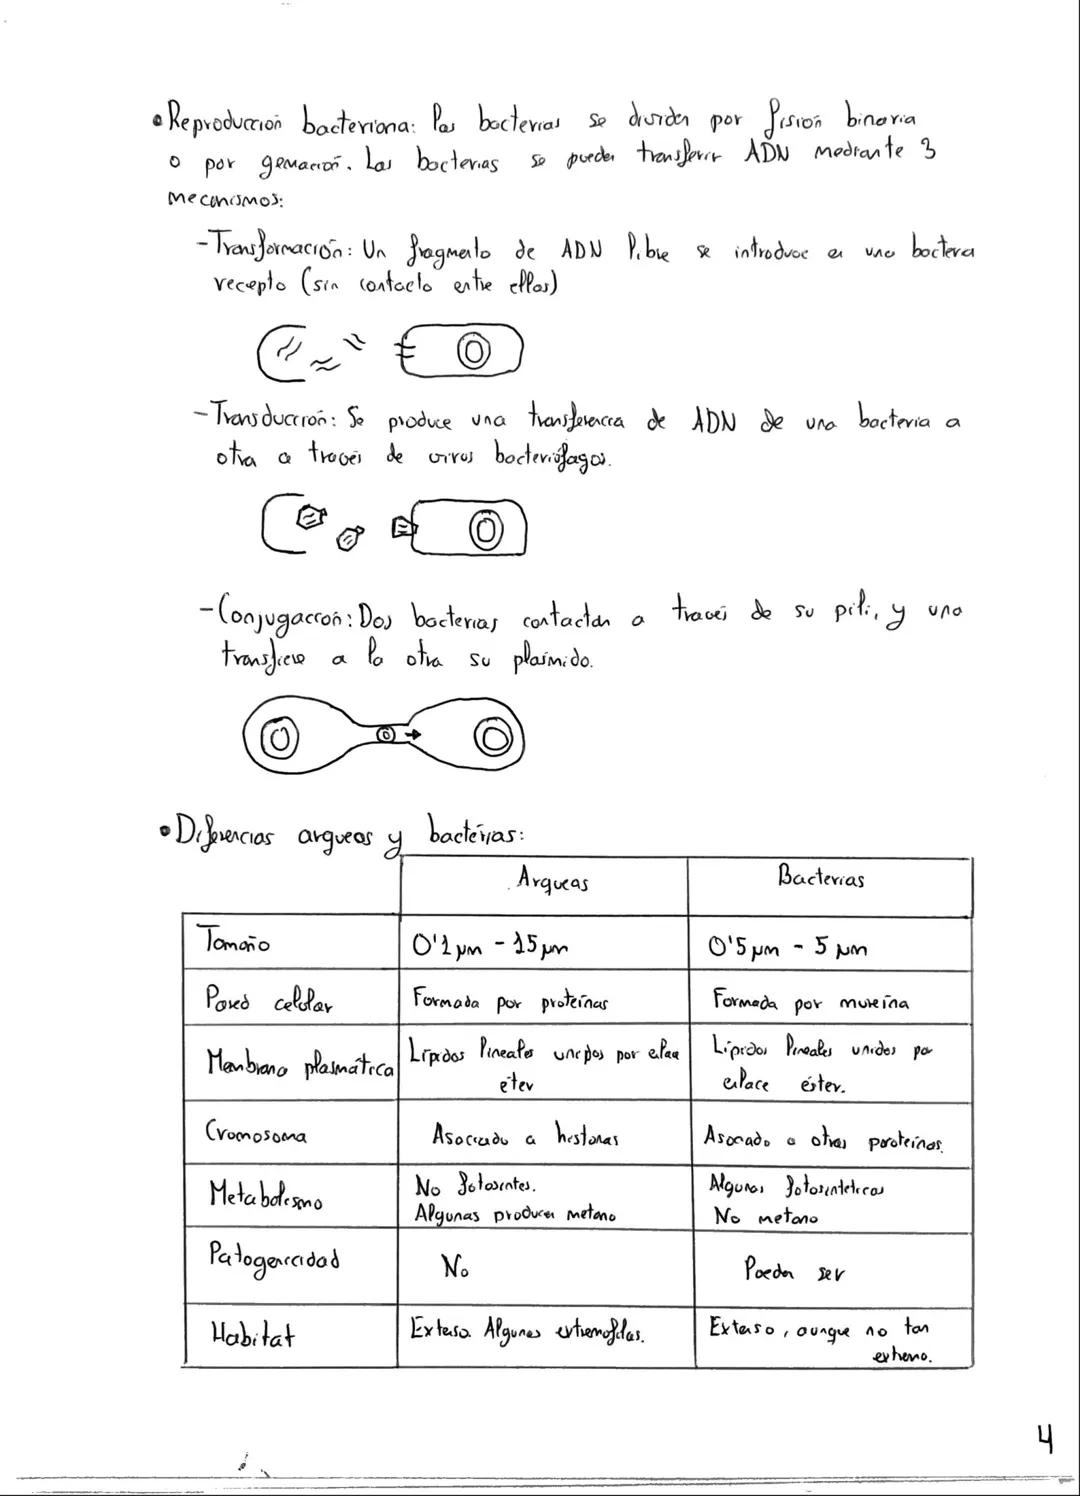 • Reproducción bacteriana: las bacterias se dividen por fisión binaria
o por gemación. Las bacterias se pueden transferir ADN mediante 3
mecanismos:
- Transformación: Un fragmento de ADN libre se introduce en una bactera
recepto (sin contacto entre ellas)
- Transducción: Se produce una transferencia de ADN de una bacteria a
otra a través de virus bacteriófagos.
- Conjugacción: Dos bacterias contactan a través de su pili, y una
transfiere a la otra su plásmido.
• Diferencias arqueas y bacterias:
Arqueas Bacterias
Tamaño 0'1 µm - 15 µm 0'5 µm - 5 µm
Pared celular Formada por proteínas Formada por mureína
Membrana plasmática Lípidos lineales unidos por enlace Lípidos lineales unidos por
éter enlace éster.
Cromosoma Asociado a histonas Asociado a otras poroteínas.
Metabolismo No fotosíntes. Algunas fotosintéticas
Algunas producen metano No metano
Patogenicidad No Pueden ser
Habitat Extenso. Algunas extremofilas. Extenso, aunque no tan
extremo.
4